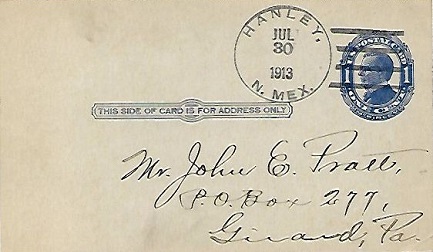 HANLEY,
JUL
30
1913
N. MEX.
U.S. POSTAL CARD
1 1
ONE CENT
THIS SIDE OF CARD IS FOR ADDRESS ONLY
Mr. John E. Pratt,
P.O. Box 277,
Girard, Pa.